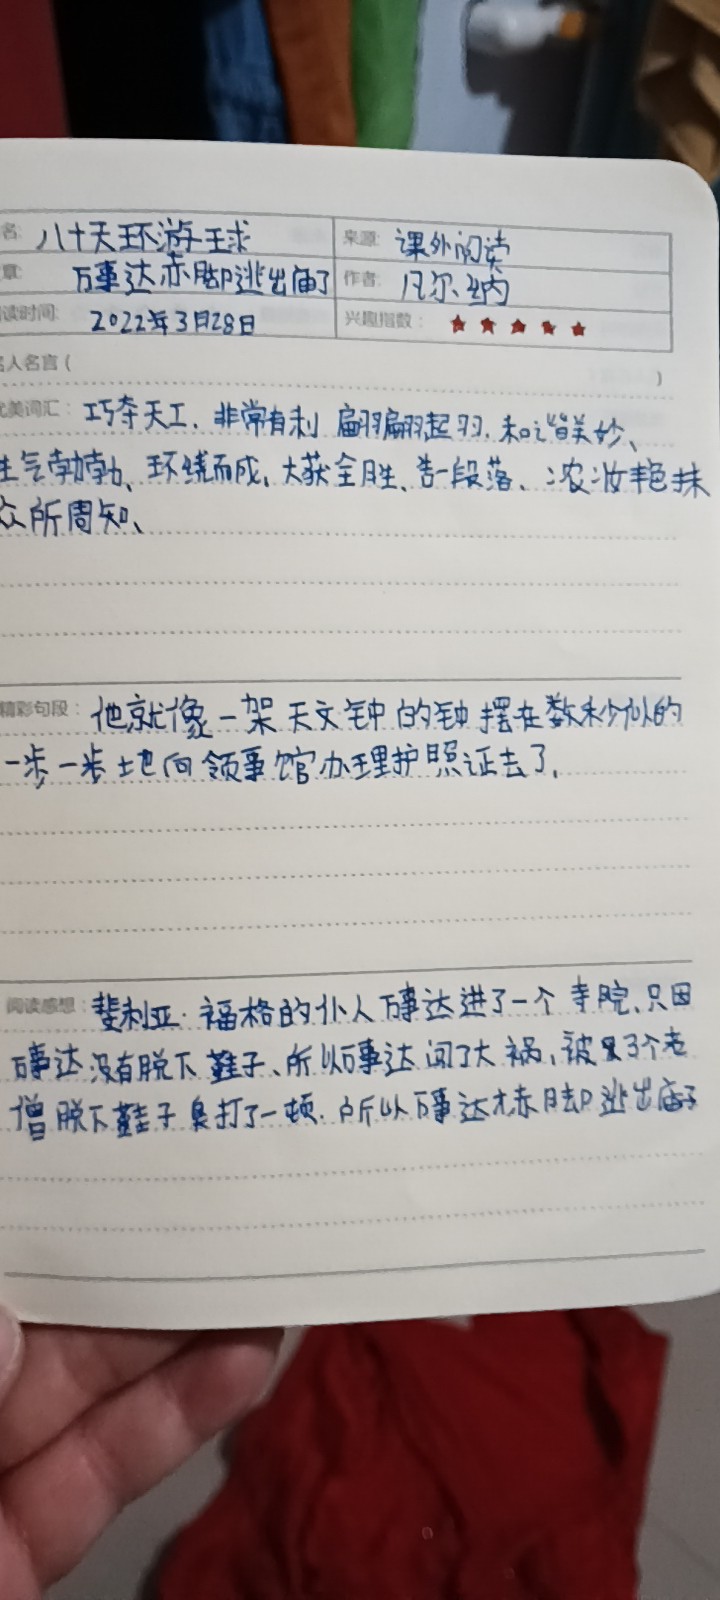 名: 八十天环游王球 来源: 课外阅读
章: 万事达赤脚逃出庙了 作者: 凡尔纳
读时间: 2022年3月28日 兴趣指数: ★ ★ ★ ★ ★
名人名言 ( )
优美词汇: 巧夺天工、非常有利 翩翩起羽、和谐美妙、
生气勃勃、环绕而成、大获全胜、告一段落、浓妆艳抹
众所周知、
精彩句段: 他就像一架天文钟的钟摆在数秒似的
一步一步地向领事馆办理护照证去了.
阅读感想: 斐利亚·福格的仆人万事达进了一个寺院、只因
万事达没有脱下鞋子、所以万事达闯了大祸、被 3个老
僧脱下鞋子臭打了一顿、所以万事达才赤脚逃出庙了